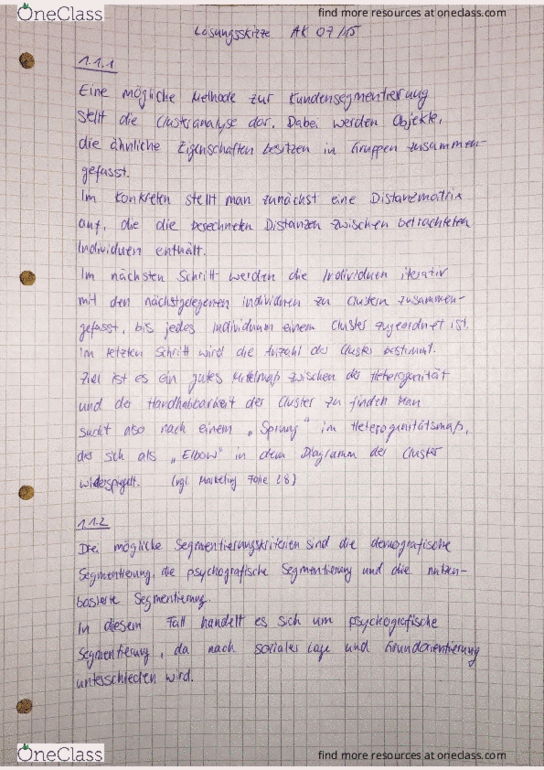 OneClass
find more resources at oneclass.com
Lösungsskizze AK 07/15
1.1.1
Eine mögliche Methode zur Kundensegmentierung
stellt die Clusteranalyse dar. Dabei werden Objekte,
die ähnliche Eigenschaften besitzen in Gruppen zusammen-
gefasst.
Im Konkreten stellt man zunächst eine Distanzmatrix
auf, die die berechneten Distanzen zwischen betrachteten
Individuen enthält.
Im nächsten Schritt werden die Individuen iterativ
mit den nächstgelegenen Individuen zu Clustern zusammen-
gefasst, bis jedes Individuum einem Cluster zugeordnet ist.
Im letzten Schritt wird die Anzahl der Cluster bestimmt.
Ziel ist es ein gutes Mittelmaß zwischen der Heterogenität
und der Handhabbarkeit der Cluster zu finden. Man
sucht also nach einem „Sprung" im Heterogenitätsmaß,
der sich als „Elbow" in dem Diagramm der Cluster
widerspiegelt. (vgl. Marketing Folie 28)
1.1.2
Drei mögliche Segmentierungskriterien sind die demografische
Segmentierung, die psychografische Segmentierung und die nutzen-
basierte Segmentierung.
In diesem Fall handelt es sich um psychografische
Segmentierung, da nach sozialer Lage und Grundorientierung
unterschieden wird.
OneClass
find more resources at oneclass.com